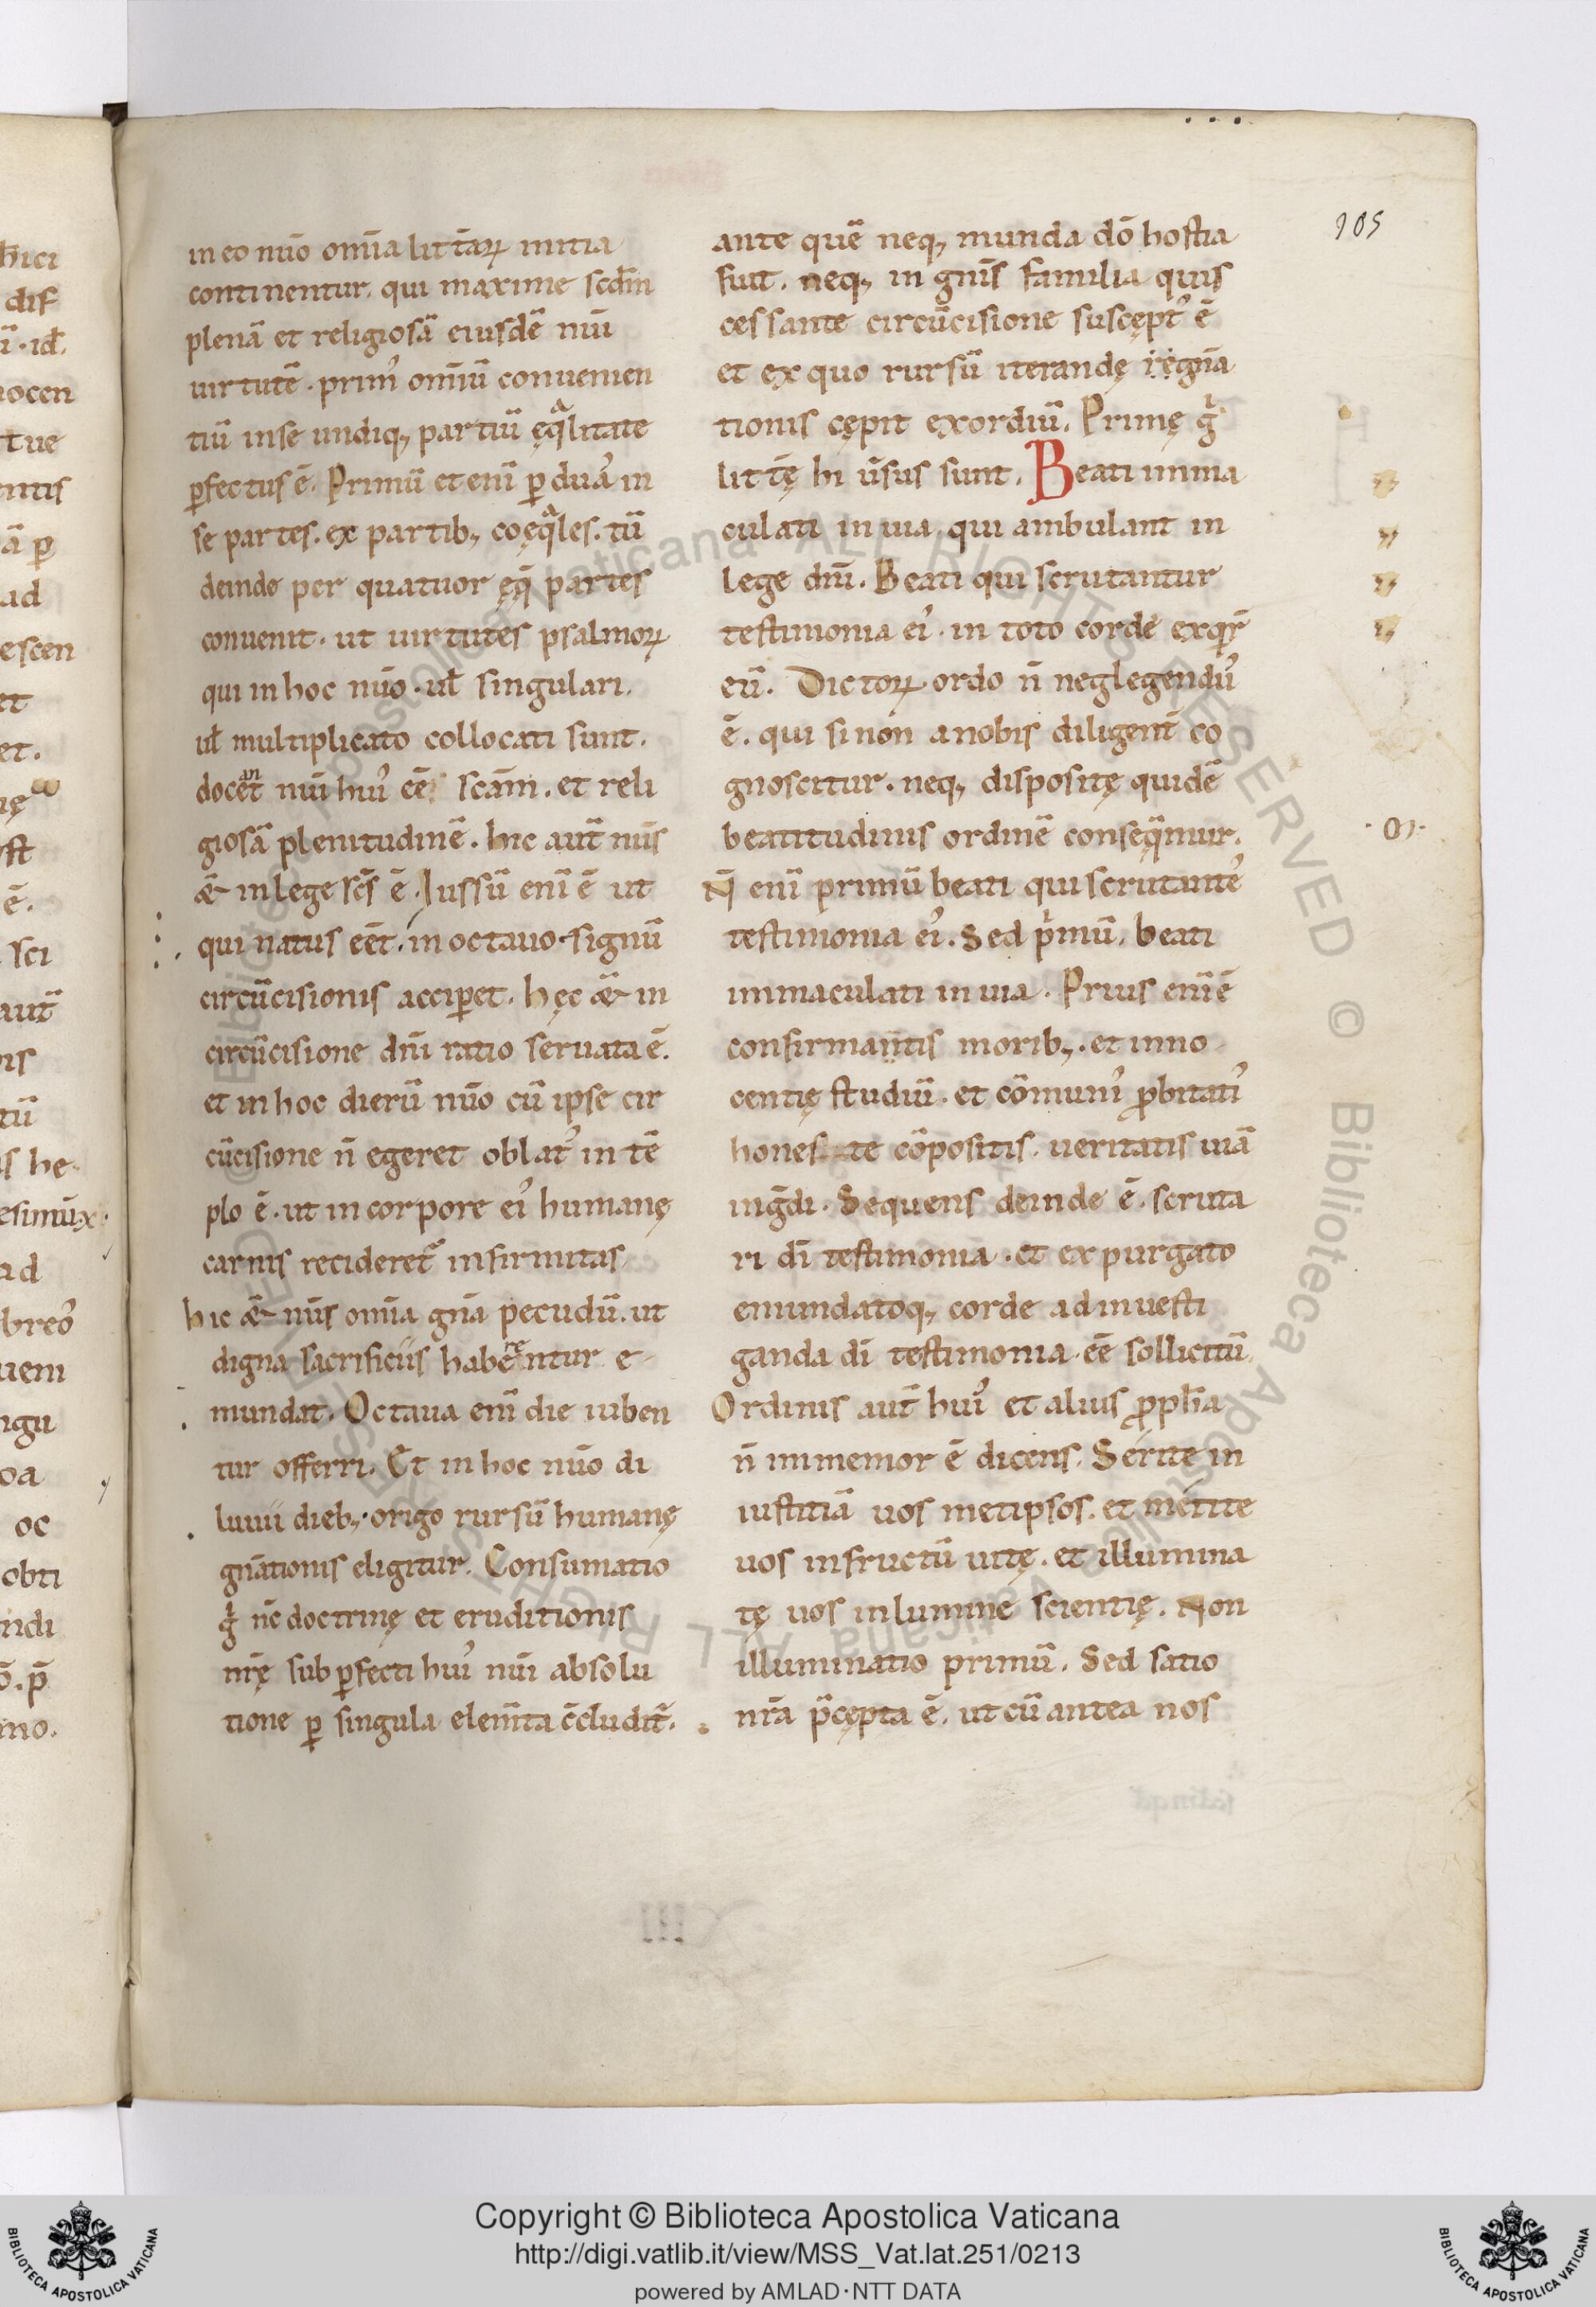 105
in eo nūo om̄ia litt̄arꝝ initia
continentur. qui maxime scd̄m
plenā et religiosā eiusdē nūi
uirtutē. primꝰ om̄iū conuenien
tiū inse undiq; partiū ęqᵃlitate
ꝑfectus ē. Primū et enī ꝑ duaꝰ in
se partes. ex partib; coęqᵃles. tū
deinde per quatuor ęq̄ partes
conuenit. ut uirtutes psalmoꝝ
qui in hoc nūo. ul̄ singulari.
ul̄ multiplicato collocati sunt.
docēt nūi huiꝰ eē scām. et reli
giosā plenitudinē. hic aut̄ nūs
& in lege scs̄ ē. Iussū enī ē ut
qui natus eēt. in octauo signū
circūcisionis acciꝑet. hęc & in
circūcisione dn̄i ratio seruata ē.
et in hoc dierū nūo cū ipse cir
cūcisione n̄ egeret oblatꝰ in tē
plo ē. ut in corpore eiꝰ humanę
carnis recideret̄ infirmitas
hic & nūs om̄ia gn̄a pecudū. ut
digna sacrificiis haberentur e
mundat. Octaua enī die iuben
tur offerri. Et in hoc nūo di
luuii dieb; origo rursū humanę
gnātionis eligitur. Consumatio
gͥ nc̄ doctrinę et eruditionis
nr̄ę sub ꝑfecti huiꝰ nūi absolu
tione ꝑ singula elem̄ta c̄cludit̄.
ante quē neq; munda dō hostia
fuit. neq; in gn̄is familia quis
cessante circūcisione suscęptꝰ ē
et ex quo rursū iterandę regnā
tionis cępit exordiū. Primę gͥ
litt̄ę hi ūsus sunt. Beati imma
culati in uia qui ambulant in
lege dn̄i. Beati qui scrutantur
testimonia eiꝰ. in toto corde exqr̄
eū. Dictoꝝ ordo n̄ neglegenduꝰ
ē. qui si non a nobis diligent̄ co
gnoscitur. neq; dispositę quidē
beatitudinis ordinē conseq̄mur.
·M·
N̄ enī primū beati qui scrutant̄
testimonia eiꝰ. Sed pͥmū. beati
immaculati in uia. Prius enī ē
confirmantis morib;. et inno
centię studiū. et cōmuniꝰ ꝓbitatiꝰ
honeste cōpositis. ueritatis uiā
ingͣdi. Sequens deinde ē. scruta
ri dī testimonia. et expurgato
emundatoq; corde ad inuesti
ganda dī testimonia. eē sollicitū.
Ordinis aut̄ huiꝰ et alius ꝓph̄a
n̄ immemor ē dicens. Serite in
iustitiā uos metipsos. et metite
uos in fructū uitę. et illumina
tę uos in lumine scientię. Non
illuminatio primū. Sed satio
nr̄a p̄cępta ē. ut cū antea nos
Copyright © Biblioteca Apostolica Vaticana
http://digi.vatlib.it/view/MSS_Vat.lat.251/0213
powered by AMLAD·NTT DATA